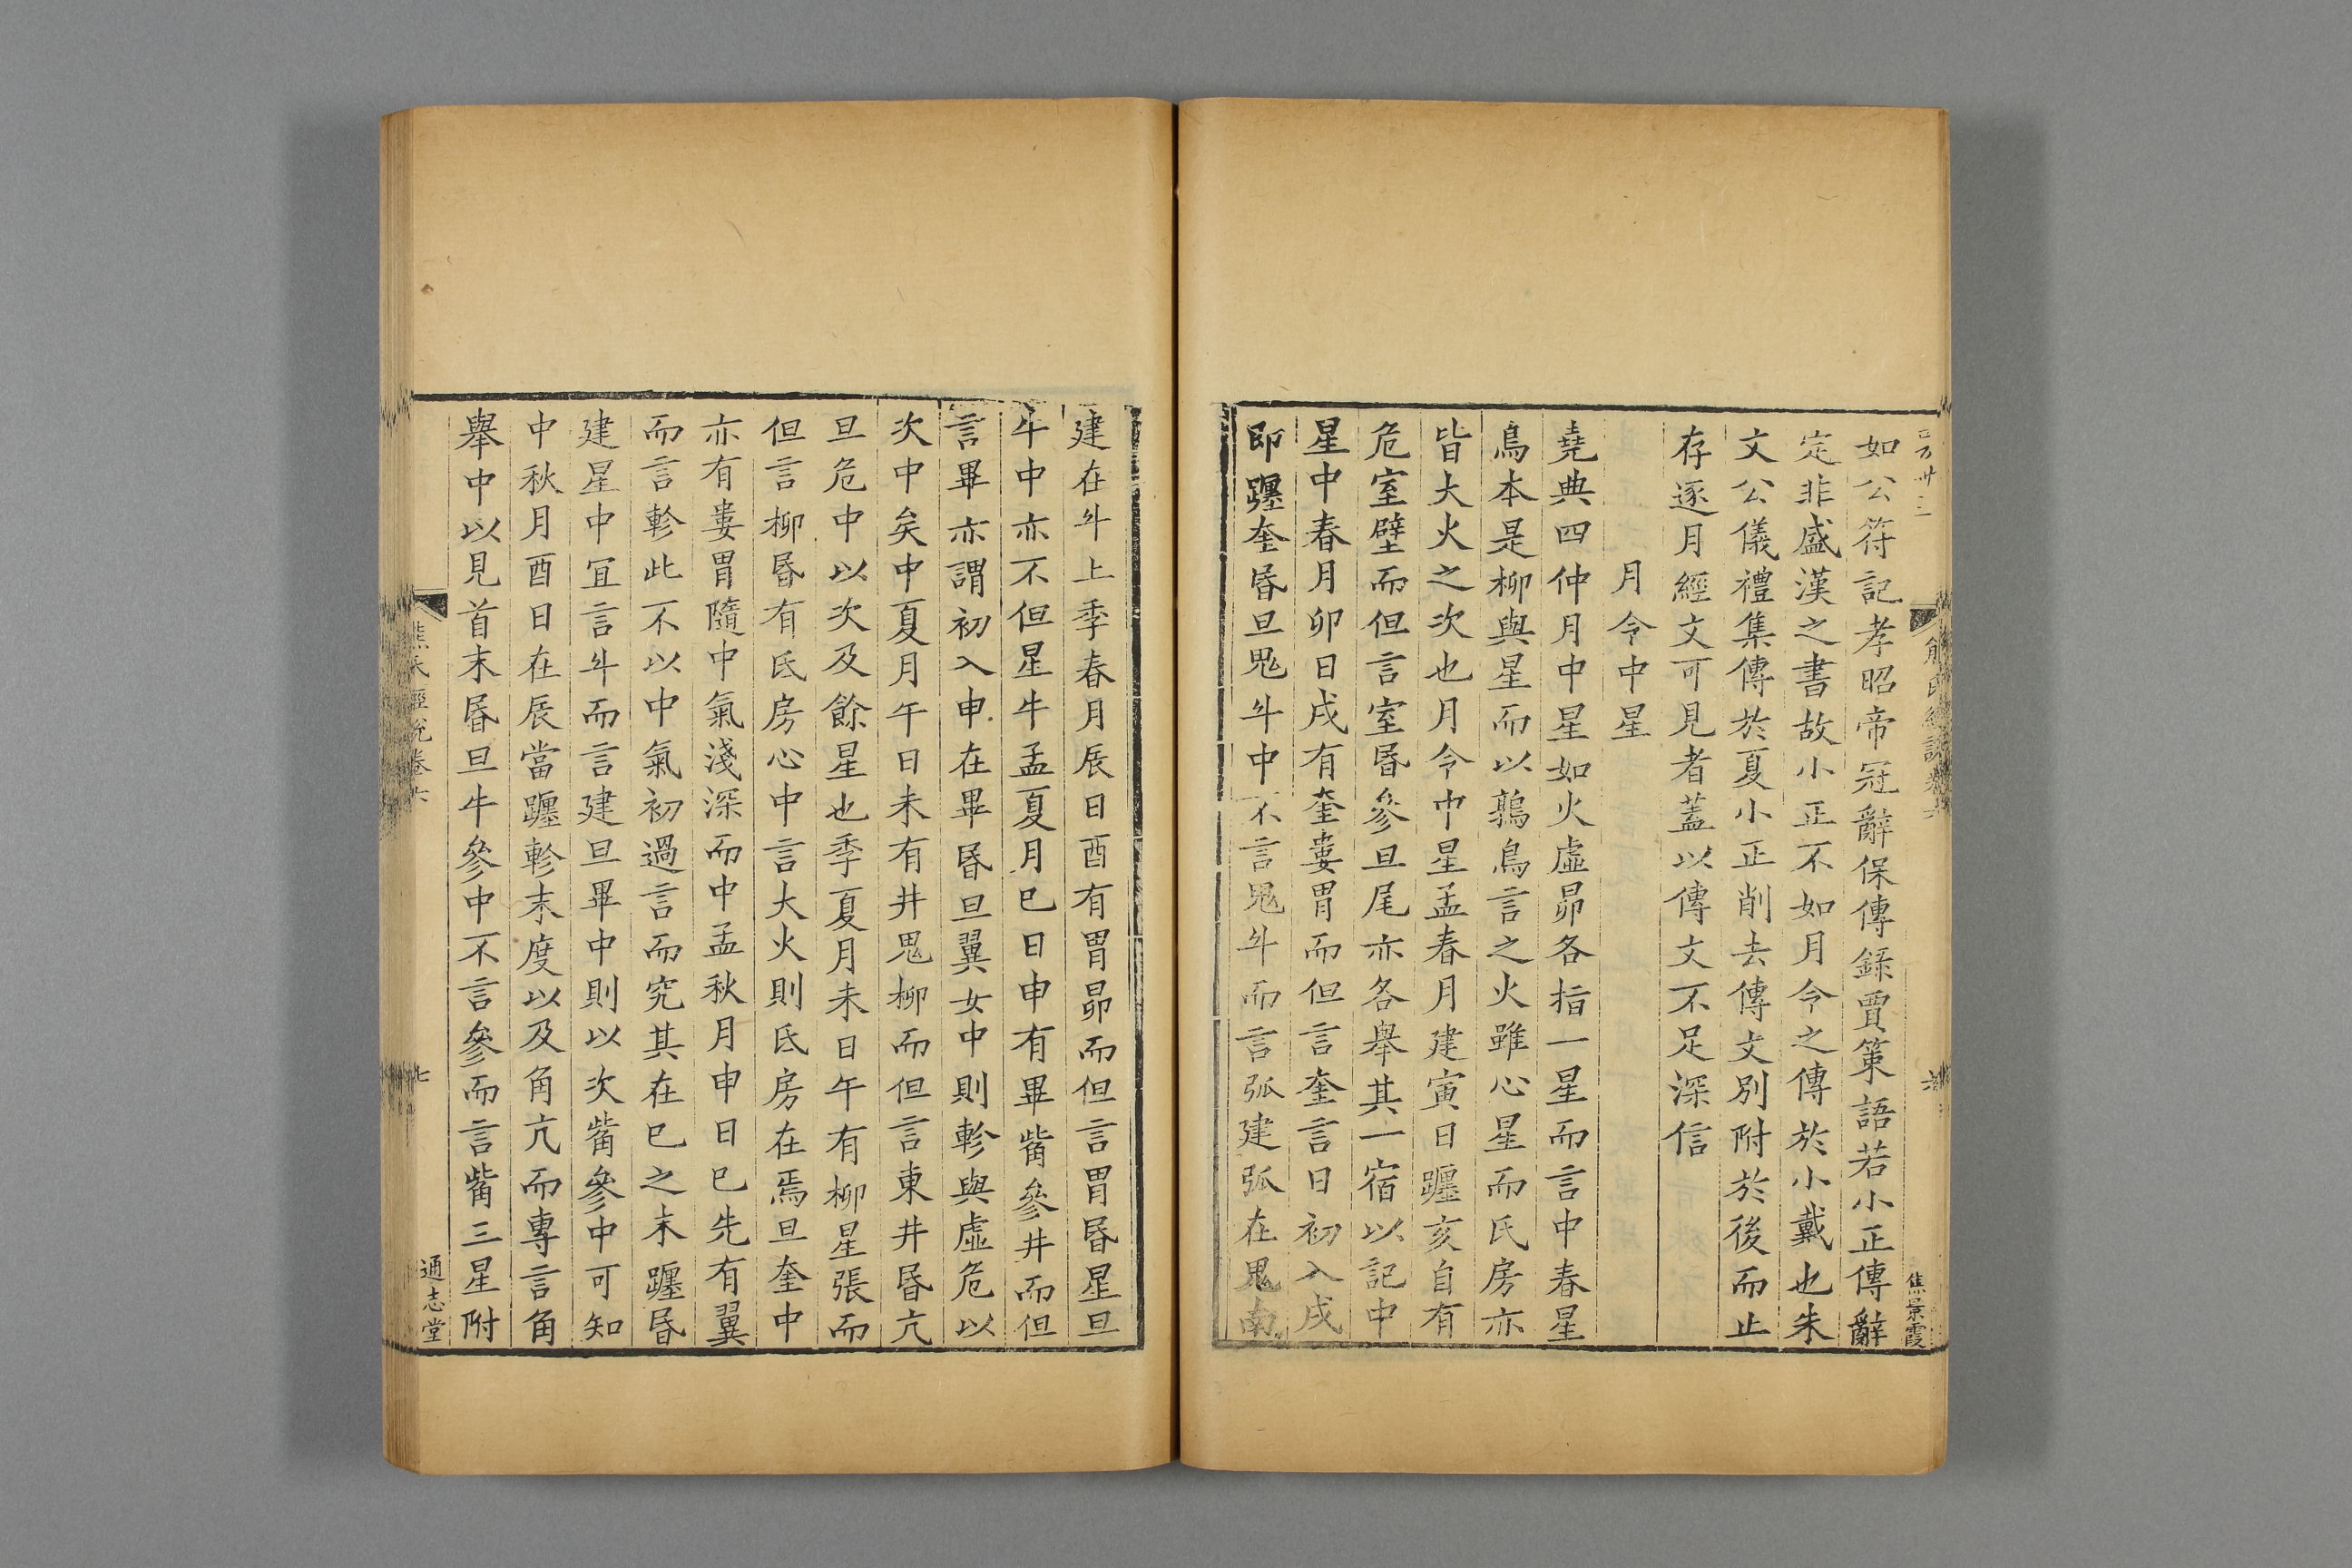 如公符記孝昭帝冠辭保傳錄賈策語若小正傳辭
定非盛漢之書故小正不如月令之傳於小戴也朱
文公儀禮集傳於夏小正削去傳文別附於後而止
存逐月經文可見者蓋以傳文不足深信
月令中星
堯典四仲月中星如火虛昴各指一星而言中春星
鳥本是柳與星而以鶉鳥言之火雖心星而氐房亦
皆大火之次也月令中星孟春月建寅日躔亥自有
危室壁而但言室昏參旦尾亦各舉其一宿以記中
星中春月卯日戌有奎婁胃而但言奎言日初入戌
即躔奎昏旦鬼斗中不言鬼斗而言弧建弧在鬼南
焦景霞
建在斗上季春月辰日酉有胃昴而但言胃昏星旦
牛中亦不但星牛孟夏月巳日申有畢觜參井而但
言畢亦謂初入申在畢昏旦翼女中則軫與虛危以
次中矣中夏月午日未有井鬼柳而但言東井昏亢
旦危中以次及餘星也季夏月未日午有柳星張而
但言柳昏有氐房心中言大火則氐房在焉旦奎中
亦有婁胃隨中氣淺深而中孟秋月申日巳先有翼
而言軫此不以中氣初過言而究其在巳之末躔昏
建星中宜言斗而言建旦畢中則以次觜參中可知
中秋月酉日在辰當躔軫末度以及角亢而專言角
舉中以見首末昏旦牛參中不言參而言觜三星附
熊氏經說卷六
七
通志堂